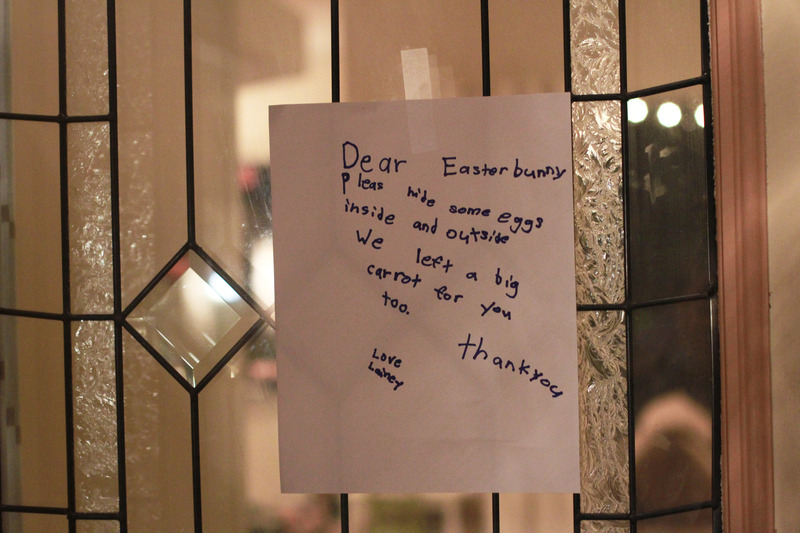 Dear Easter bunny
Pleas hide some eggs
inside and outside
We left a big
carrot for you
too.
thankyou
Love
Lainey